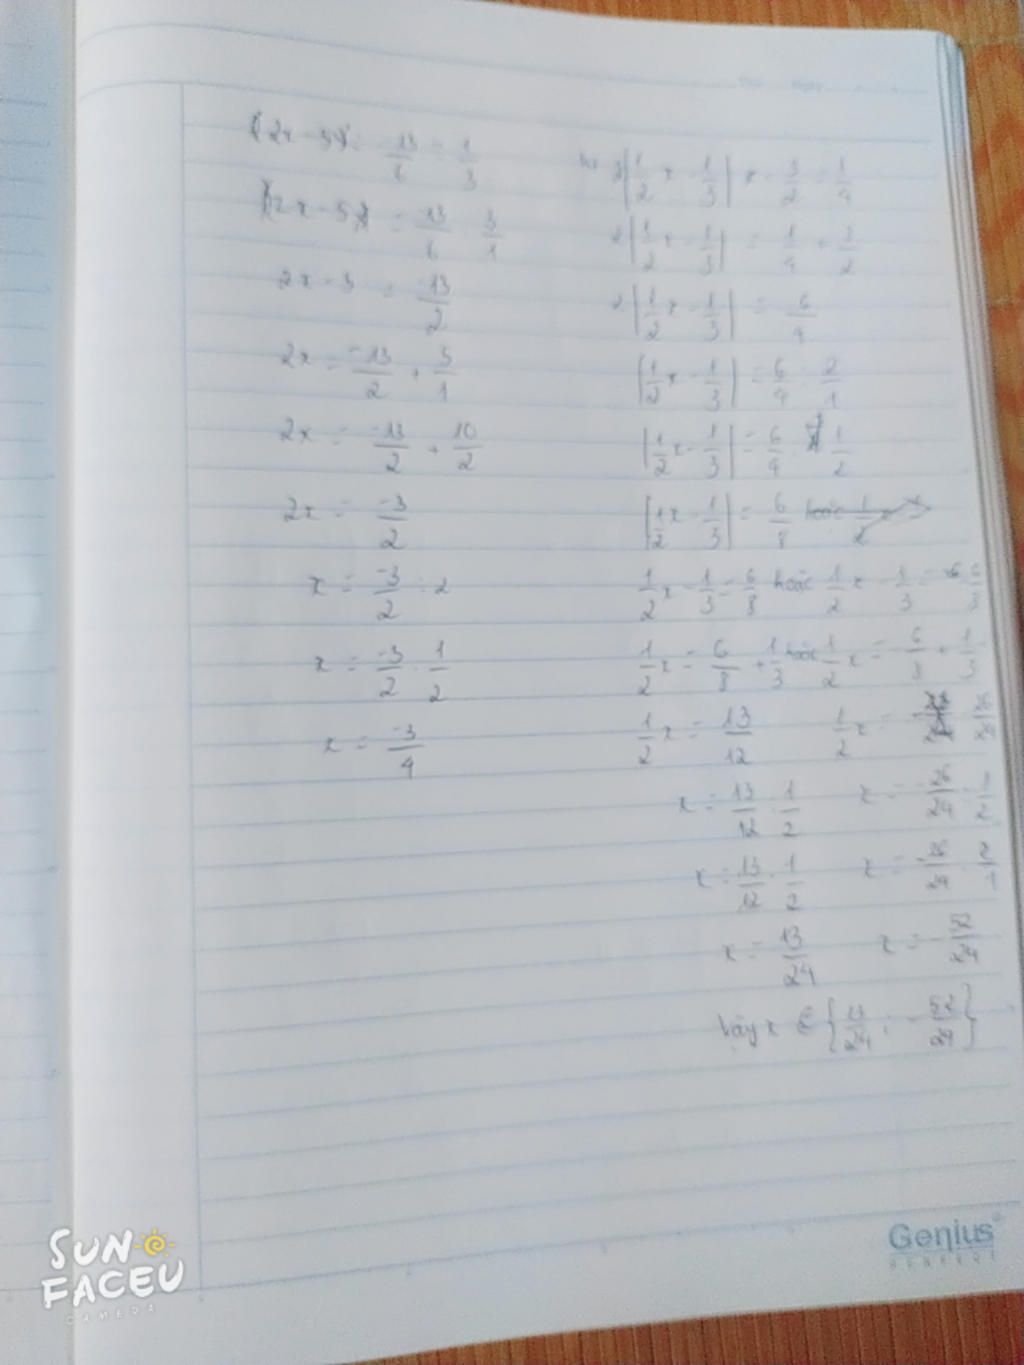 (2x - 5) = -13/6 : 1/3
(2x - 5) = -13/6 . 3/1
2x - 5 = -13/2
2x = -13/2 + 5/1
2x = -13/2 + 10/2
2x = -3/2
x = -3/2 : 2
x = -3/2 . 1/2
x = -3/4
2|1/2x - 1/3| - 3/2 = 1/4
2|1/2x - 1/3| = 1/4 +
2|1/2x - 1/3| = 6/4
|1/2x - 1/3| = 6/4 : 2/1
|1/2x - 1/3| = 6/4 . 1/2
|1/2x - 1/3| = 6/8
1/2x - 1/3 = 6/8 hoặc 1/2x - 1/3 = -6
1/2x = 6/8 + 1/3 hoặc 1/2x = -6/8 + 1/3
1/2x = 13/12 1/2x = -
x = 13/12 : 1/2 x = -26/24 : 1/2
x = 13/12 . 1/2 x = -26/24 . 2/1
x = 13/24 x = -52/24
Vậy x ∈ {13/24 ; -52/24}
Genius
SUN
FACEU
CAMERA